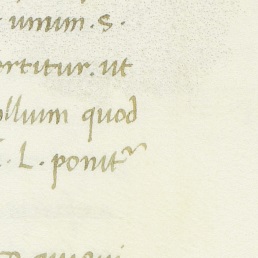 unum .s.
ortitur. ut
ollum quod
. L. ponit